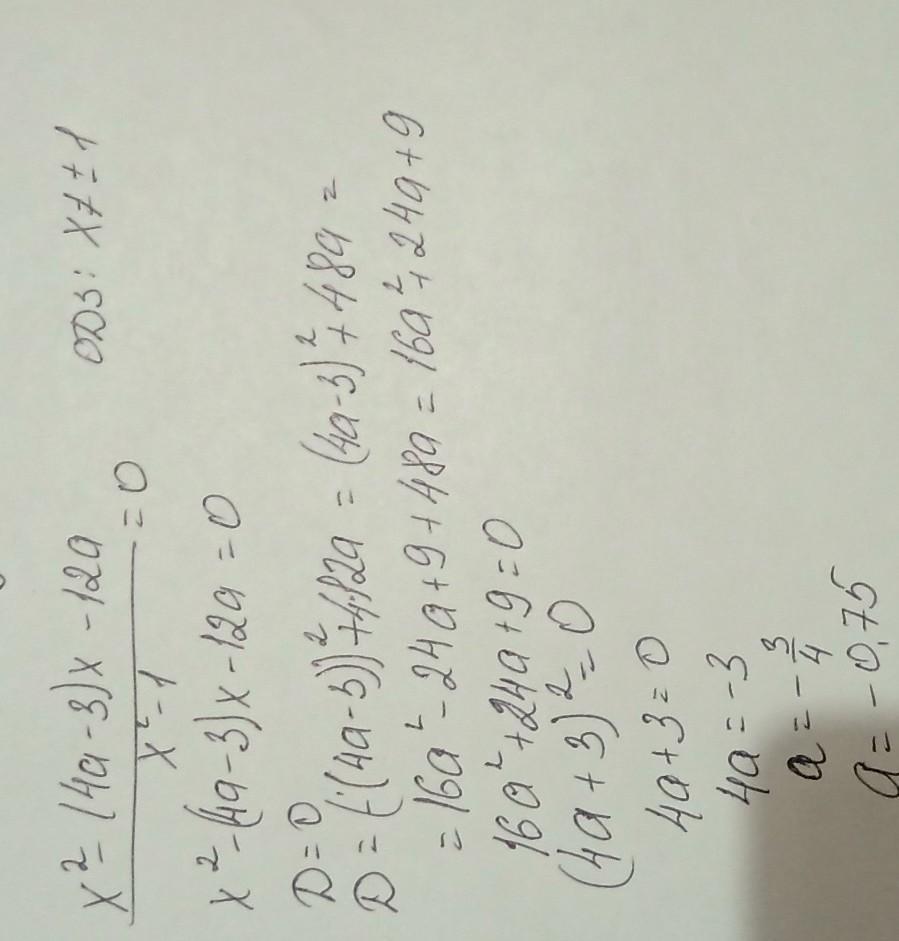 x² - (4a-3)x - 12a
x² - 1
= 0
ОДЗ: x ≠ ± 1
x² - (4a-3)x - 12a = 0
D = 0
D = (-(4a-3))² + 4·12a = (4a-3)² + 48a =
= 16a² - 24a + 9 + 48a = 16a² + 24a + 9
16a² + 24a + 9 = 0
(4a + 3)² = 0
4a + 3 = 0
4a = -3
a = - 3/4
a = - 0,75